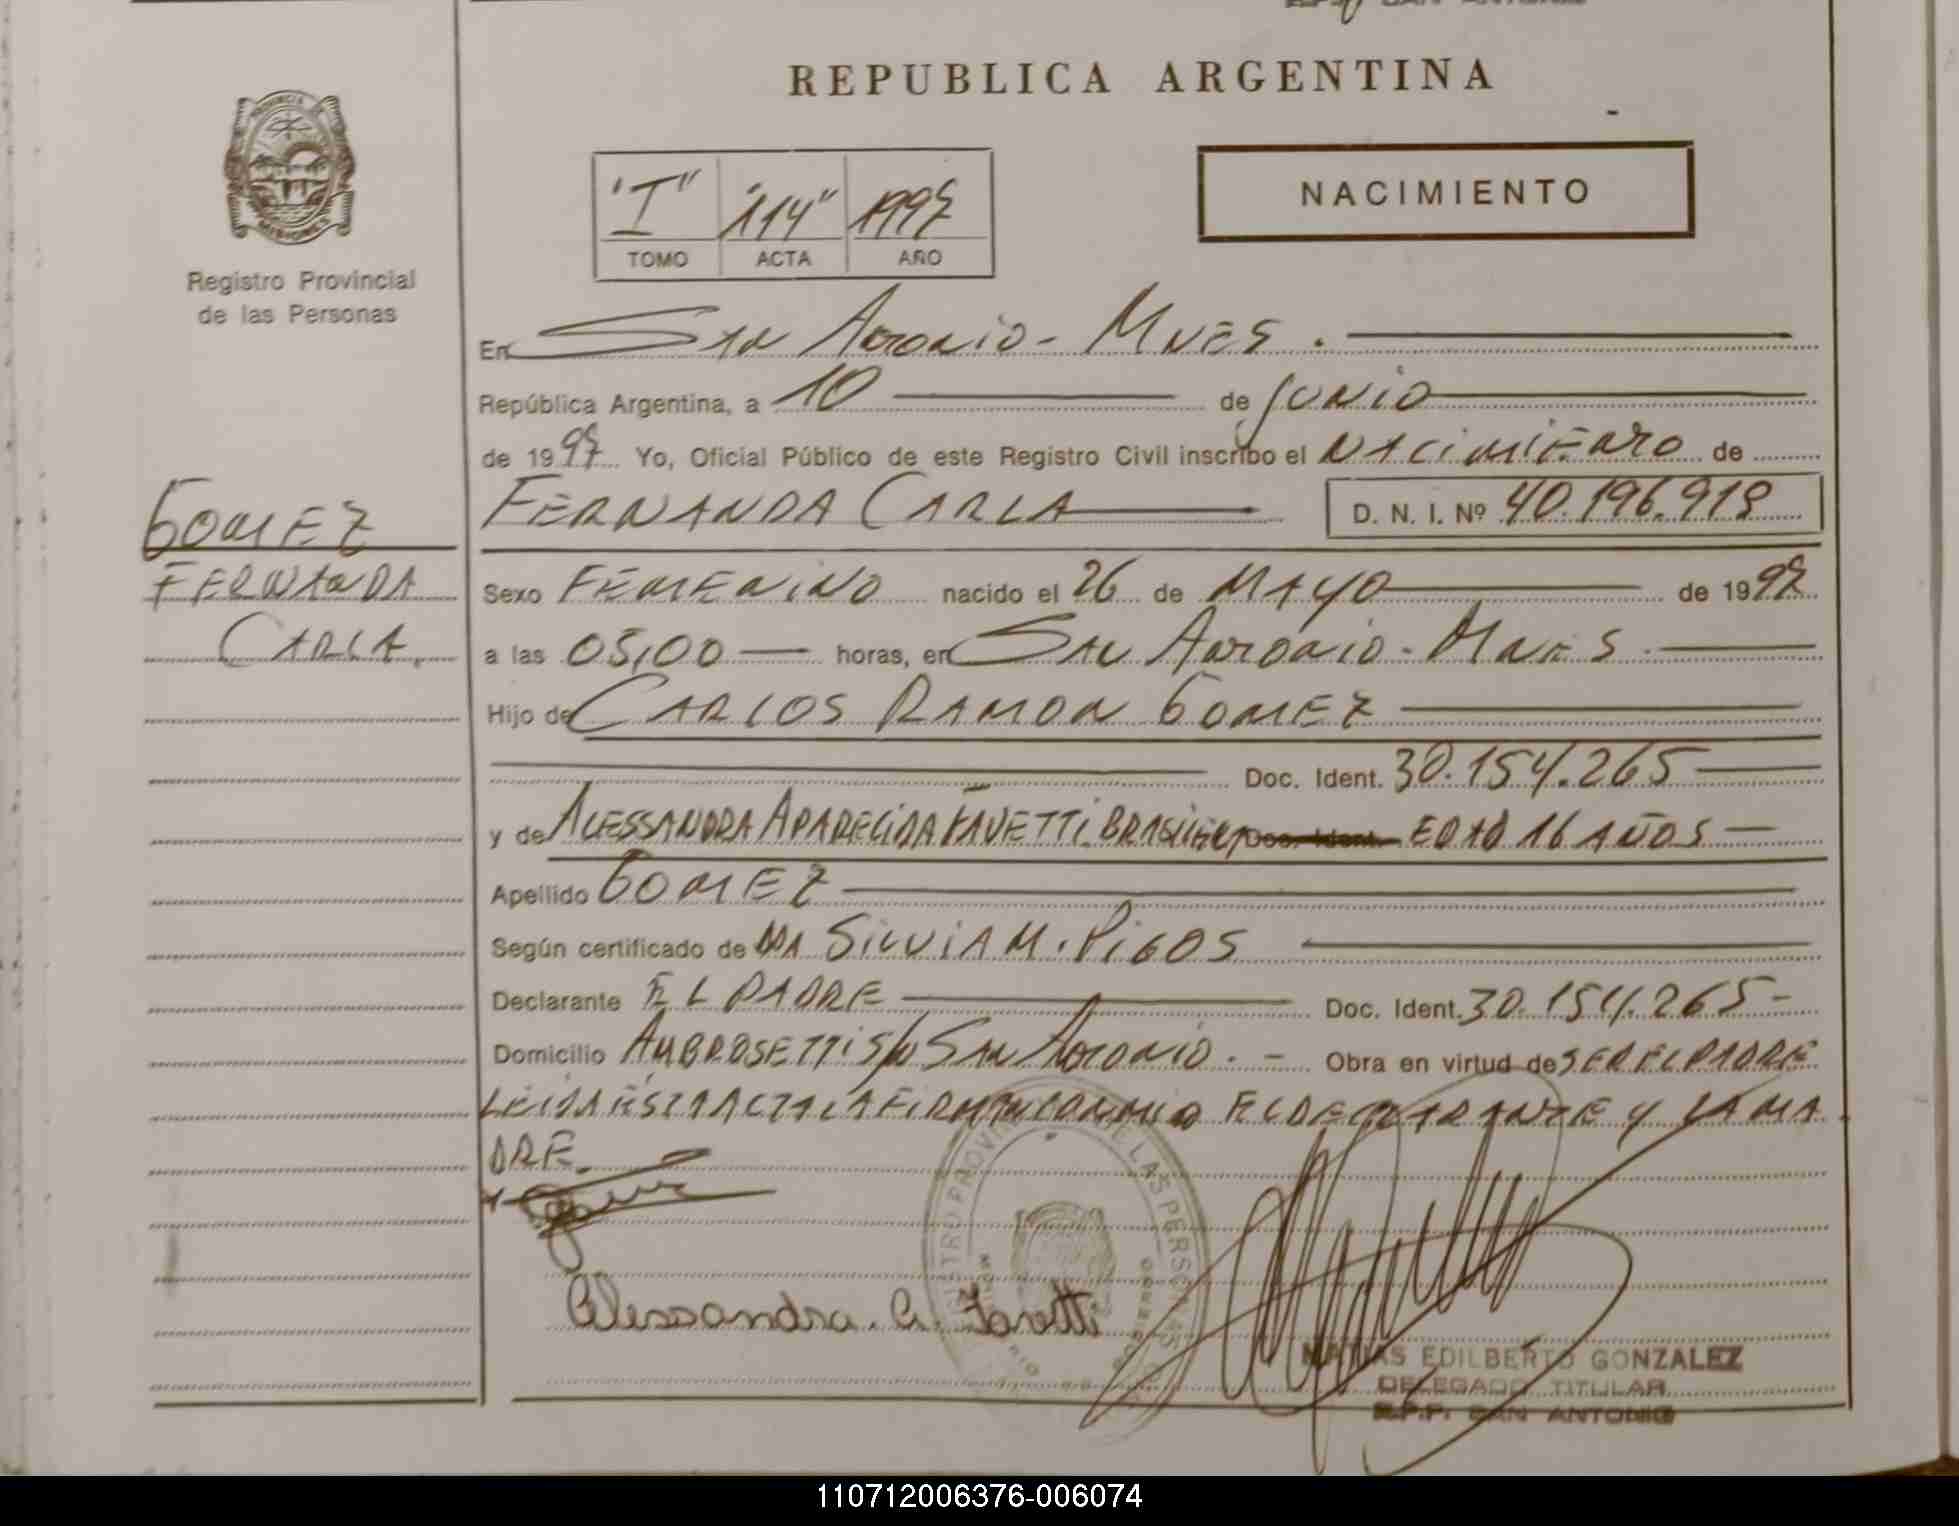 SAN ANTONIO
REPUBLICA ARGENTINA
PROVINCIA
MISIONES
Registro Provincial
de las Personas
NACIMIENTO
"I" "114" 1997
TOMO ACTA AÑO
En San Antonio - Mnes.
República Argentina, a 10 de Junio
de 1997 Yo, Oficial Público de este Registro Civil inscribo el NACIMIENTO de
FERNANDA CARLA D. N. I. Nº 40.196.918
GOMEZ
FERNANDA
CARLA.
Sexo FEMENINO nacido el 26 de MAYO de 1997
a las 05,00 horas, en San Antonio - Mnes.
Hijo de CARLOS RAMON GOMEZ
Doc. Ident. 30.154.265
y de ALESSANDRA APARECIDA FAVETTI. Doc. Ident. EDAD 16 AÑOS
Apellido GOMEZ
Según certificado de DRA SILVIA M. PIGOS
Declarante EL PADRE Doc. Ident. 30.154.265-
Domicilio AMBROSETTI S/N SAN ANTONIO. - Obra en virtud de SER EL PADRE
LEIDA ESTA ACTA LA FIRMAN CONMIGO EL DECLARANTE Y LA MA
DRE.
Alessandra. A. Favetti
MATIAS EDILBERTO GONZALEZ
DELEGADO TITULAR
R.P.P. SAN ANTONIO
110712006376-006074